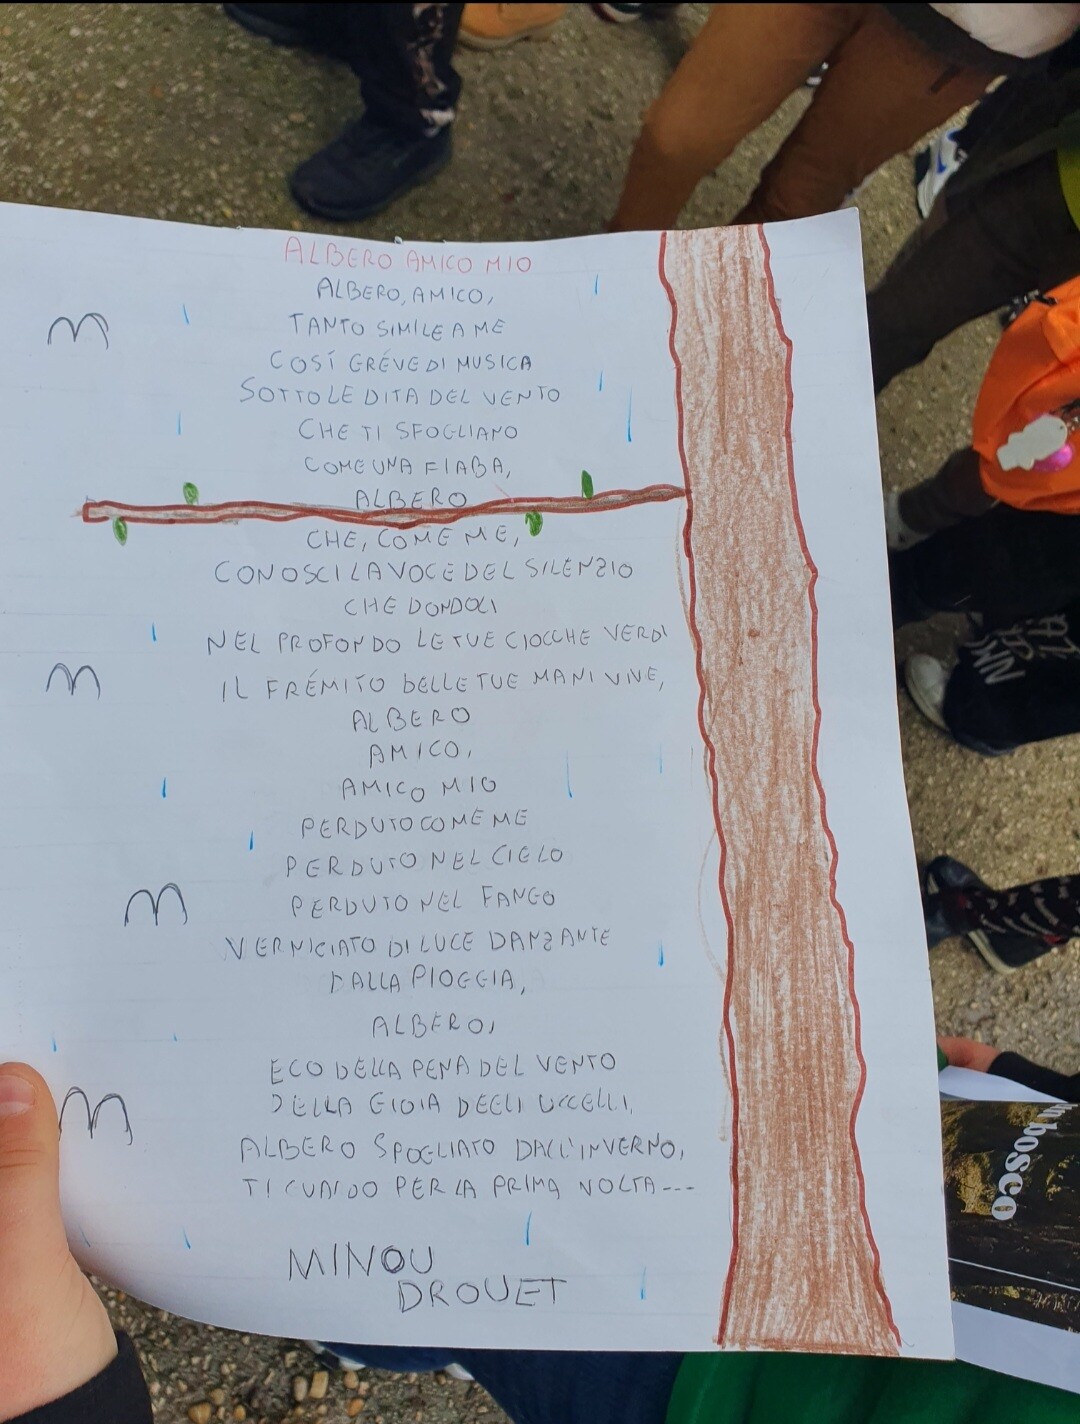 ALBERO AMICO MIO
ALBERO, AMICO,
TANTO SIMILE A ME
COSÍ GRÉVE DI MUSICA
SOTTO LE DITA DEL VENTO
CHE TI SFOGLIANO
COME UNA FIABA,
ALBERO
CHE, COME ME,
CONOSCI LA VOCE DEL SILENZIO
CHE DONDOLI
NEL PROFONDO LE TUE CIOCCHE VERDI
IL FRÉMITO DELLE TUE MANI VIVE,
ALBERO
AMICO,
AMICO MIO
PERDUTO COME ME
PERDUTO NEL CIELO
PERDUTO NEL FANGO
VERNICIATO DI LUCE DANZANTE
DALLA PIOGGIA,
ALBERO,
ECO DELLA PENA DEL VENTO
DELLA GIOIA DEGLI UCCELLI,
ALBERO SPOGLIATO DALL'INVERNO,
TI GUARDO PER LA PRIMA VOLTA---
MINOU
DROUET
bosco